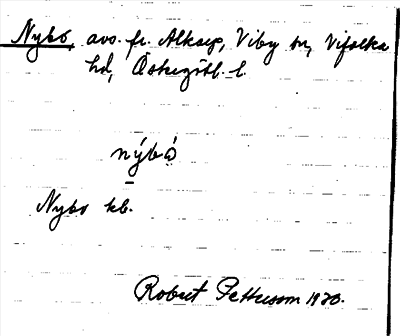 Nybo, avs. fr. Alksep, Viby sn, Vifolka
hd, Östergötl. l.
nýbó
Nybo kb.
Robert Pettersson 1920.